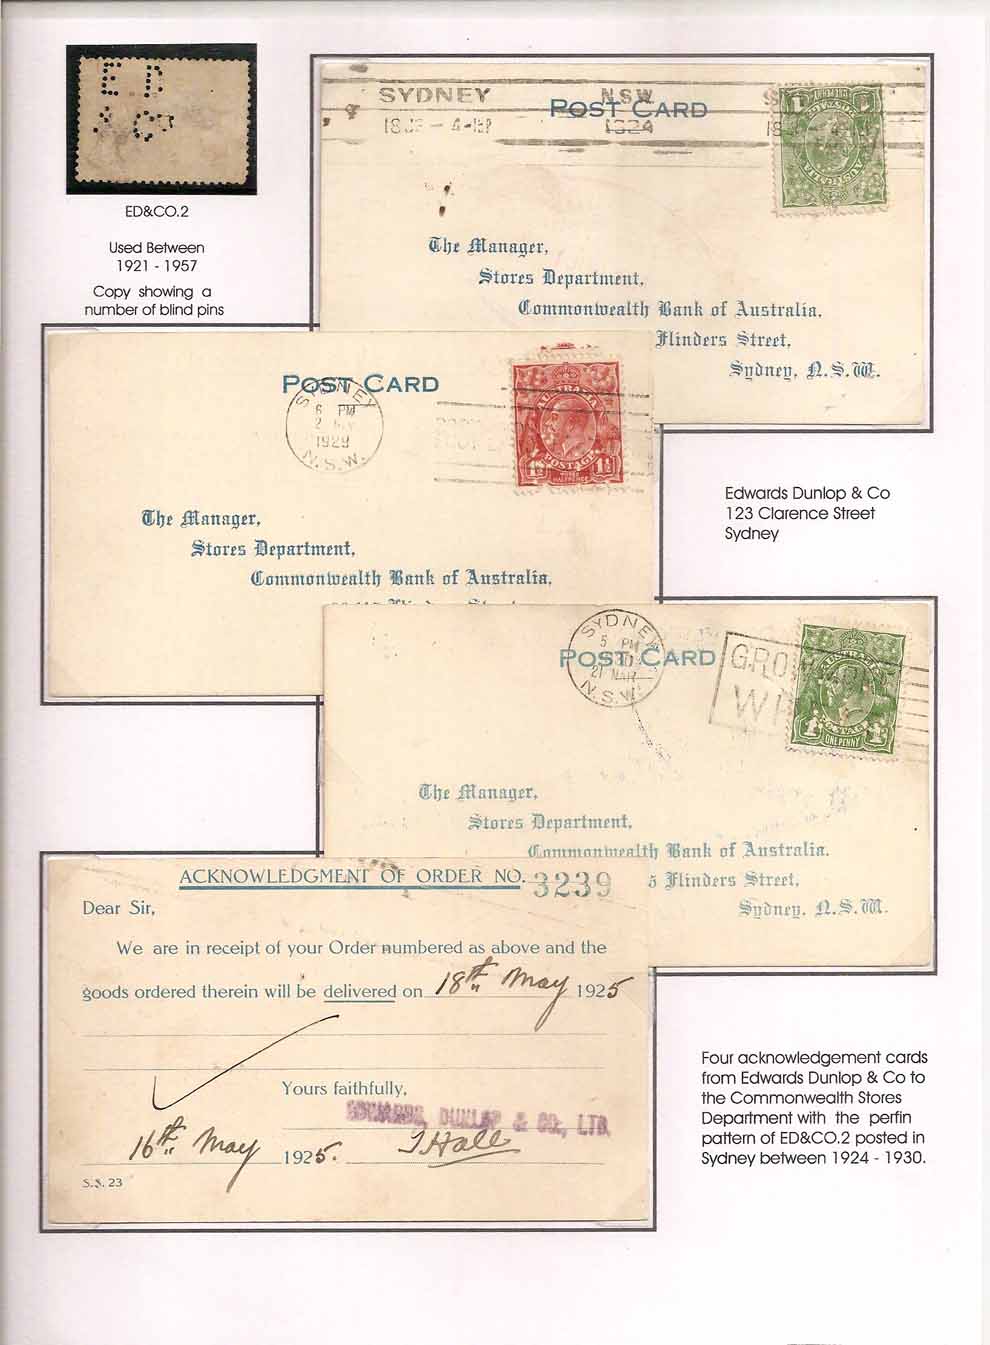 E D
& Co
ED&CO.2
Used Between
1921 - 1957
Copy showing a
number of blind pins
SYDNEY N.S.W.
POST CARD
4-15P 1924
The Manager,
Stores Department,
Commonwealth Bank of Australia,
Flinders Street,
Sydney, N.S.W.
POST CARD
SYDNEY
6 PM
2
1929
N.S.W.
AUSTRALIA
POSTAGE
THREE
HALFPENCE
The Manager,
Stores Department,
Commonwealth Bank of Australia,
Edwards Dunlop & Co
123 Clarence Street
Sydney
POST CARD
SYDNEY
5 PM
21 MAR
N.S.W.
AUSTRALIA
POSTAGE
ONE PENNY
The Manager,
Stores Department,
Commonwealth Bank of Australia.
5 Flinders Street,
Sydney. N.S.W.
ACKNOWLEDGMENT OF ORDER NO. 3239
Dear Sir,
We are in receipt of your Order numbered as above and the
goods ordered therein will be delivered on 18th May 1925
Yours faithfully,
EDWARDS, DUNLOP & CO., LTD.
16th May 1925. J Hall
S.S. 23
Four acknowledgement cards
from Edwards Dunlop & Co to
the Commonwealth Stores
Department with the perfin
pattern of ED&CO.2 posted in
Sydney between 1924 - 1930.